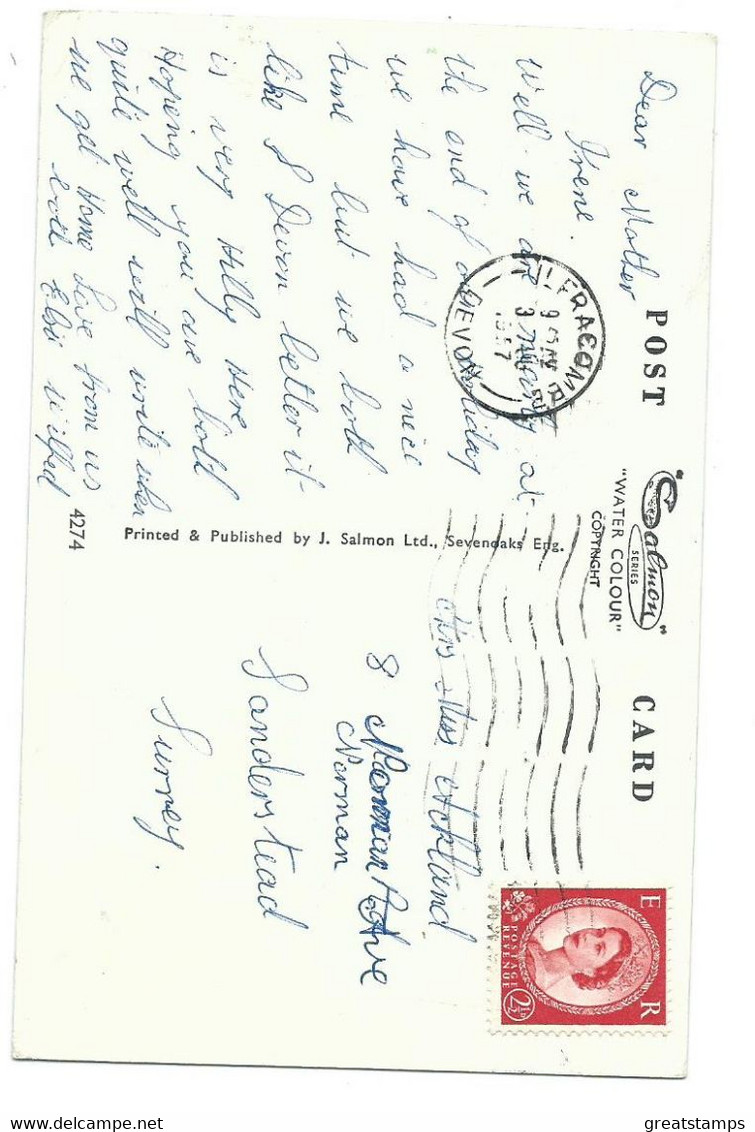 POST CARD
"Salmon"
SERIES
"WATER COLOUR"
COPYRIGHT
Dear Mother
Irene.
Well we are at
the end of Holiday
we have had a nice
time but we both
like S Devon better it
is very Hilly Here
Hoping you are both
quite well will write when
we get Home Love from us
both Elsie Wilfred
ILFRACOMBE
DEVON
1957
Printed & Published by J. Salmon Ltd., Sevenoaks Eng.
4274
Mrs Miss Ackland
8 Norman Ave
Norman
Sanderstead
Surrey.
E R
POSTAGE
REVENUE
2½D
www.delcampe.net
greatstamps